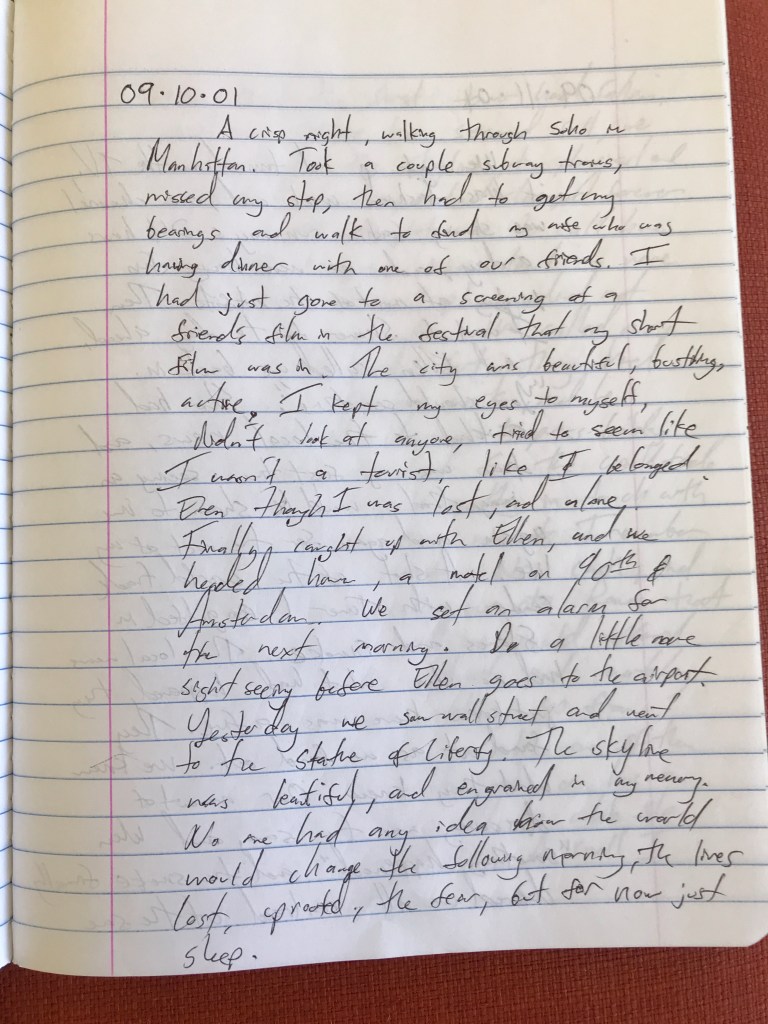 09.10.01
A crisp night, walking through Soho in
Manhattan. Took a couple subway trains,
missed my stop, then had to get my
bearings and walk to find my wife who was
having dinner with one of our friends. I
had just gone to a screening of a
friend's film in the festival that my short
film was in. The city was beautiful, bustling,
active. I kept my eyes to myself,
didn't look at anyone, tried to seem like
I wasn't a tourist, like I belonged.
Even though I was lost, and alone.
Finally caught up with Ellen, and we
headed home, a motel on 90th &
Amsterdam. We set an alarm for
the next morning. Do a little more
sight seeing before Ellen goes to the airport.
Yesterday we saw wall street and went
to the statue of liberty. The skyline
was beautiful, and engrained in my memory.
No one had any idea how the world
would change the following morning, the lives
lost, uprooted, the fear, but for now just
sleep.